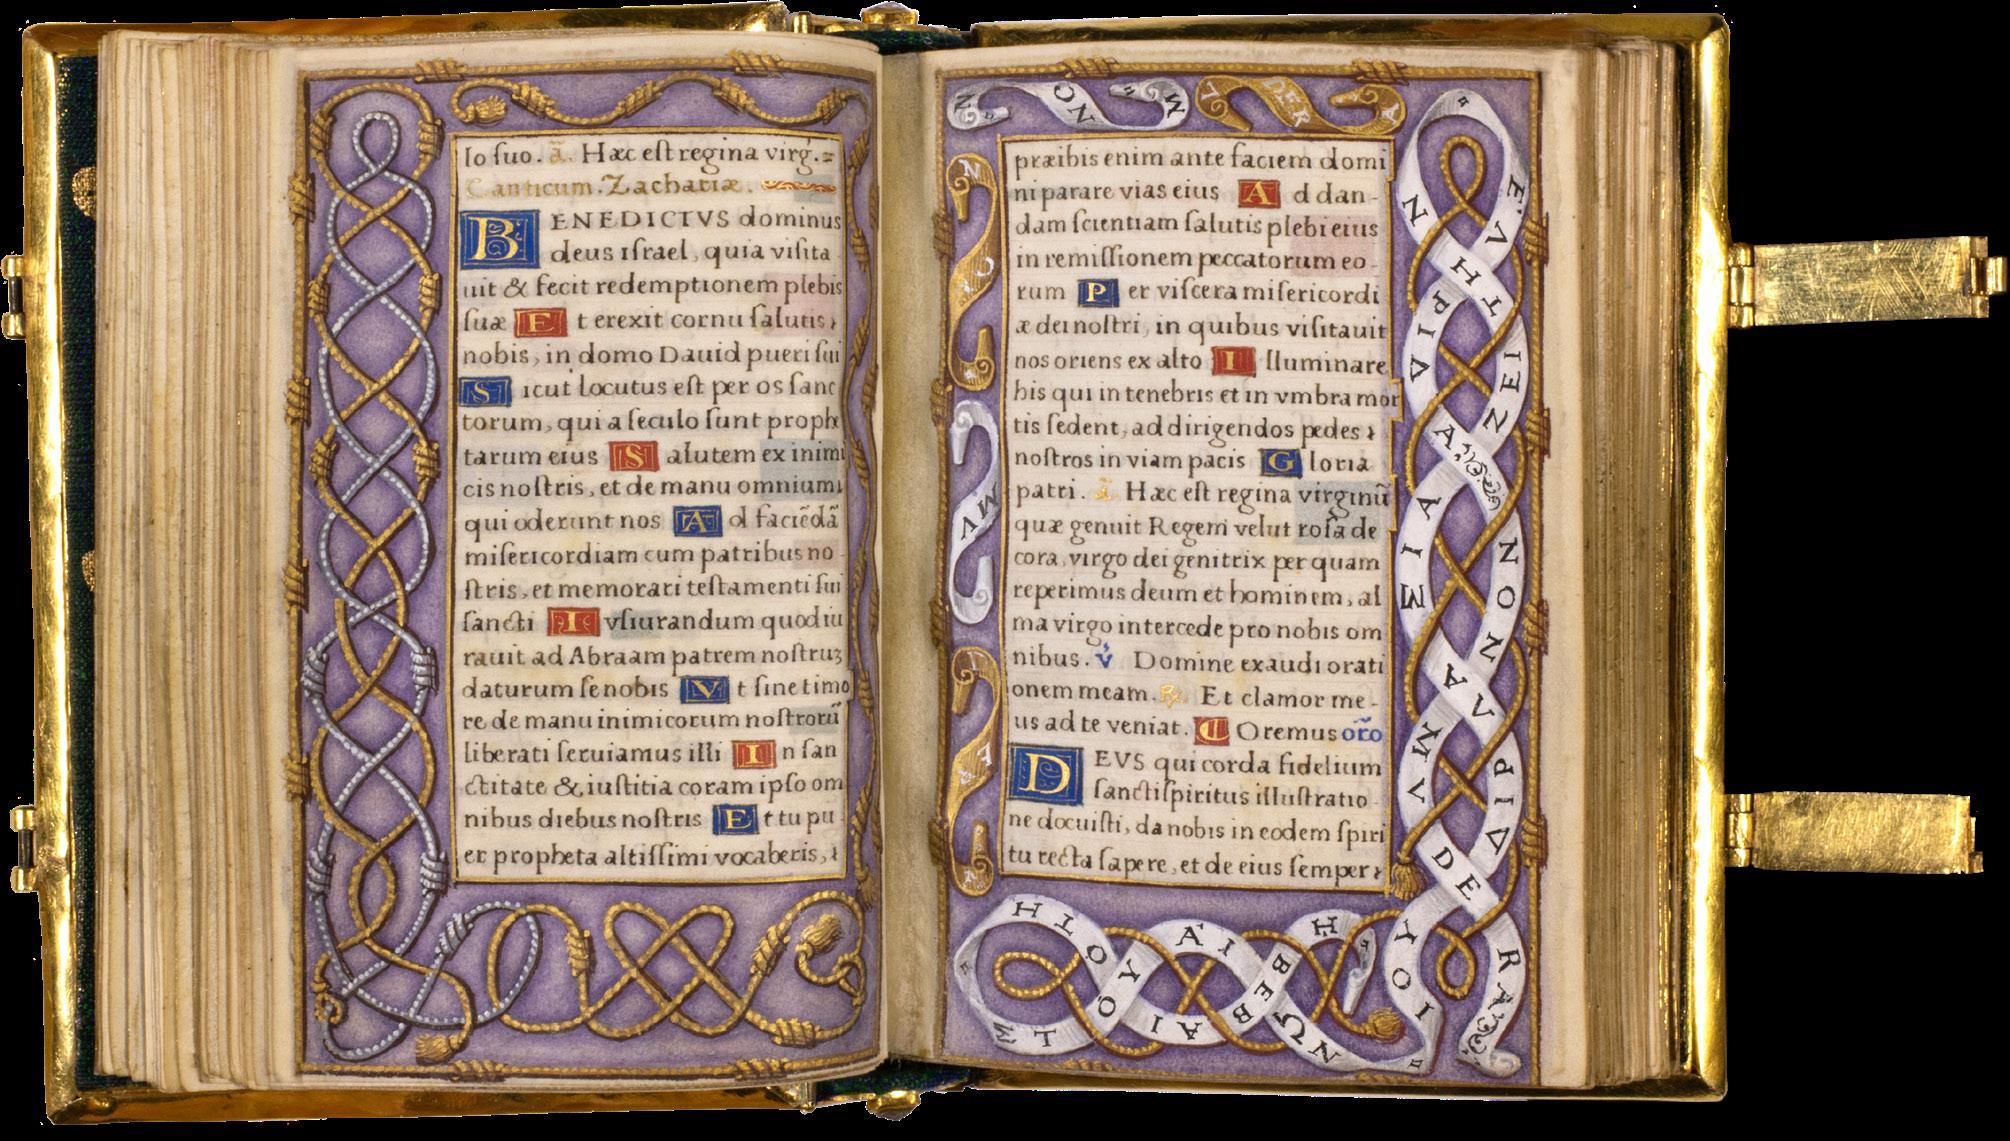 lo suo. ā. Hæc est regina virg̃.
Canticum. Zachariæ.
BENEDICTVS dominus
deus israel, quia visita
uit & fecit redemptionem plebis
suæ Et erexit cornu salutis
nobis, in domo Dauid pueri sui
Sicut locutus est per os sanc
torum, qui a seculo sunt prophe
tarum eius Salutem ex inimi
cis nostris, et de manu omnium
qui oderunt nos Ad faciēdā
misericordiam cum patribus no
stris, et memorari testamenti sui
sancti Iusiurandum quod iu
rauit ad Abraam patrem nostruʒ
daturum se nobis Vt sine timo
re de manu inimicorum nostrorū
liberati seruiamus illi In san
ctitate & iustitia coram ipso om
nibus diebus nostris Et tu pu
er propheta altissimi vocaberis,
N NON M L DER A
præibis enim ante faciem domi
ni parare vias eius Ad dan
dam scientiam salutis plebi eius
in remissionem peccatorum eo
rum Per viscera misericordi
æ dei nostri, in quibus visitauit
nos oriens ex alto Illuminare
his qui in tenebris et in vmbra mor
tis sedent, ad dirigendos pedes
nostros in viam pacis Gloria
patri. ā Hæc est regina virginū
quæ genuit Regem velut rosa de
cora, virgo dei genitrix per quam
reperimus deum et hominem, al
ma virgo intercede pro nobis om
nibus. v̇ Domine exaudi orati
onem meam. ℟ Et clamor me
us ad te veniat. Oremus oro
DEVS qui corda fidelium
sancti spiritus illustratio
ne docuisti, da nobis in eodem spiri
tu recta sapere, et de eius semper